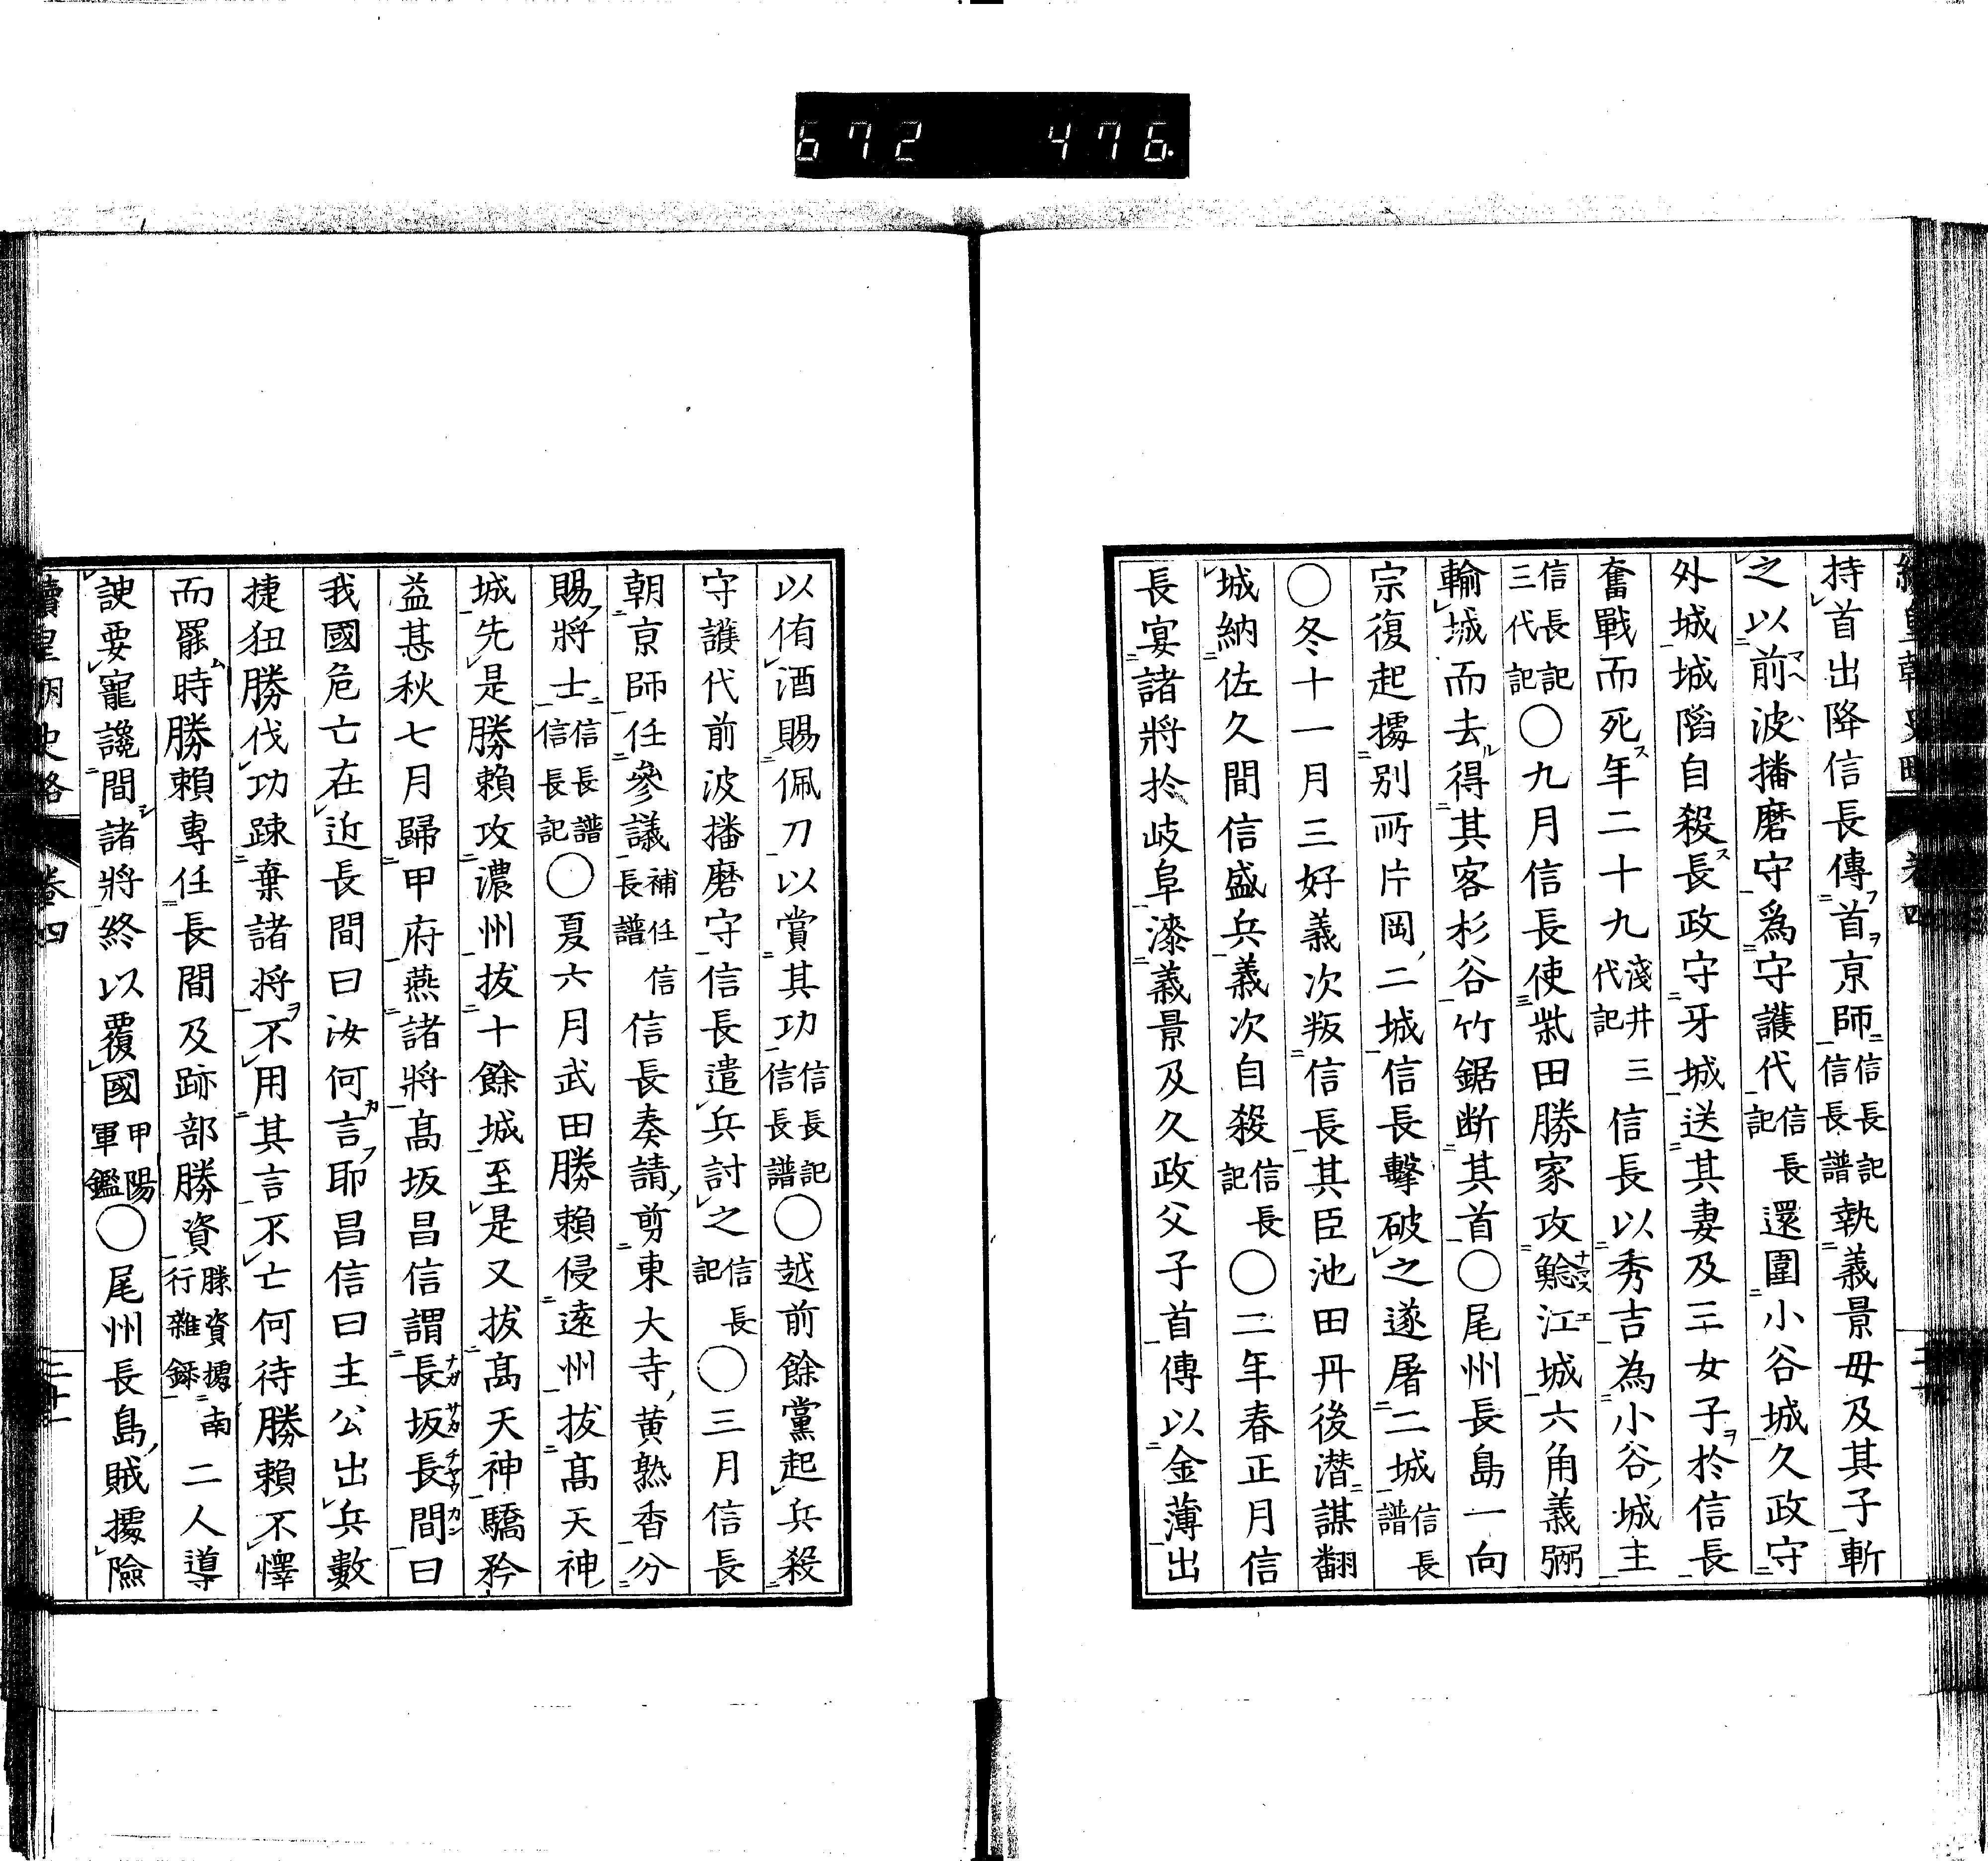 672 476
持首出降信長傳首京師信長記信長譜執義景母及其子斬
之以前波播磨守爲守護代信長記還圍小谷城久政守
外城城陷自殺長政守牙城送其妻及三女子於信長
奮戰而死年二十九淺井三代記信長以秀吉為小谷城主
信長記三代記〇九月信長使柴田勝家攻鯰江城六角義弼
輸城而去得其客杉谷竹鋸断其首〇尾州長島一向
宗復起據別所片岡二城信長擊破之遂屠二城信長譜
〇冬十一月三好義次叛信長其臣池田丹後潜謀翻
城納佐久間信盛兵義次自殺信長記〇二年春正月信
長宴諸將於岐阜漆義景及久政父子首傳以金薄出
以侑酒賜佩刀以賞其功信長記信長譜〇越前餘黨起兵殺
守護代前波播磨守信長遣兵討之信長記〇三月信長
朝京師任參議補任信長譜信長奏請剪東大寺黄熟香分
賜將士信長譜信長記〇夏六月武田勝賴侵遠州拔髙天神
城先是勝賴攻濃州拔十餘城至是又拔髙天神驕矜
益甚秋七月歸甲府燕諸將髙坂昌信謂長坂長間曰
我國危亡在近長間曰汝何言耶昌信曰主公出兵數
捷狃勝伐功踈棄諸將不用其言不亡何待勝賴不懌
而罷時勝賴專任長間及跡部勝資勝資據南行雜録二人導
諛要寵讒間諸將終以覆國甲陽軍鑑〇尾州長島賊據險
續皇朝史略 卷四 二十一